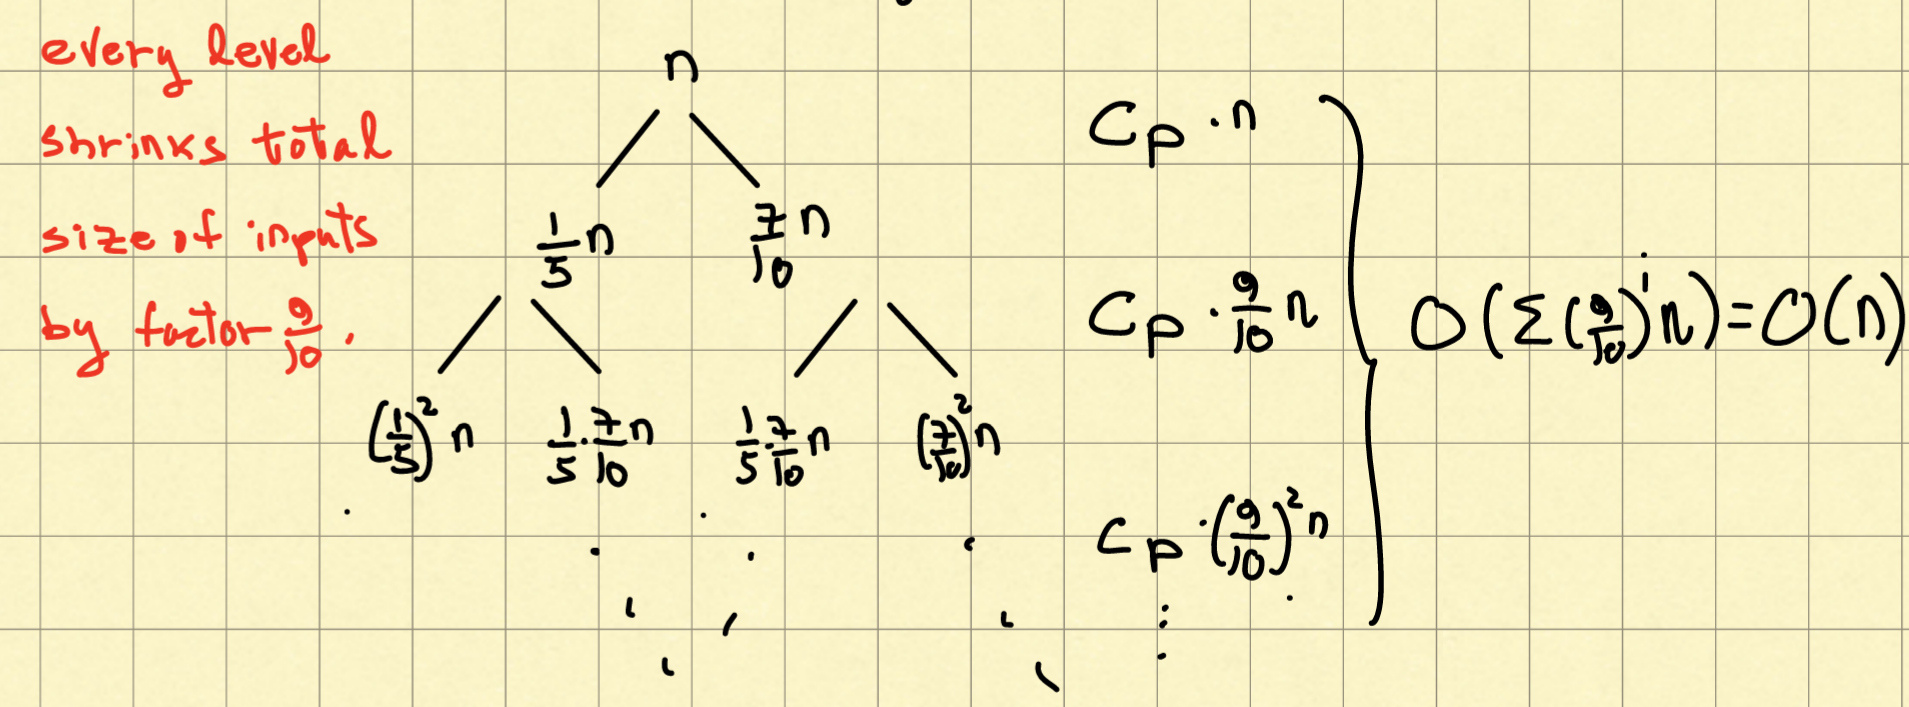 every level
shrinks total
size of inputs
by factor 9/10.
n
1/5 n 7/10 n
(1/5)² n 1/5 · 7/10 n 1/5 · 7/10 n (7/10)² n
Cp · n
Cp · 9/10 n
Cp · (9/10)² n
⋮
O(Σ(9/10)ⁱ n) = O(n)